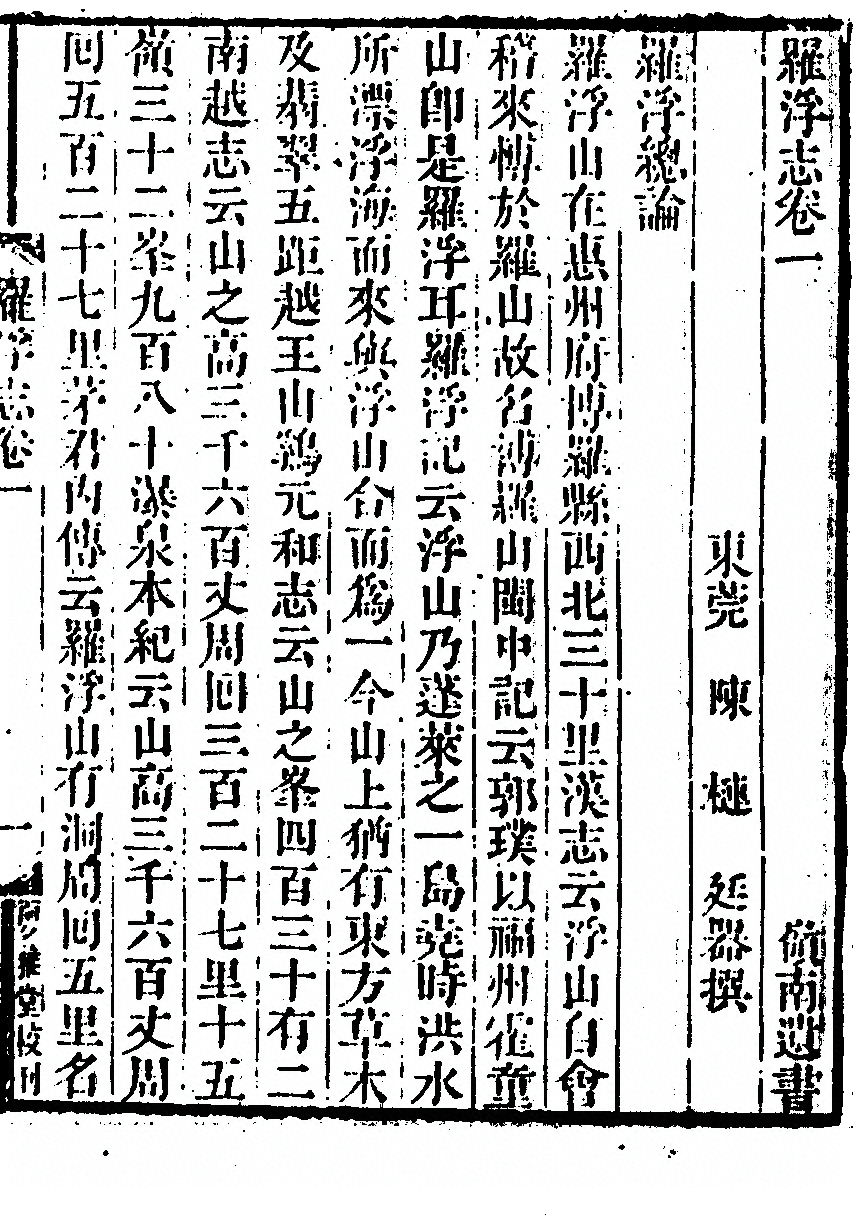 羅浮志卷一 嶺南遺書
東莞 陳 槤 廷器撰
羅浮總論
羅浮山在惠州府博羅縣西北三十里漢志云浮山自會
稽來慱於羅山故名博羅山閩中記云郭璞以福州霍童
山卽是羅浮耳羅浮記云浮山乃蓬萊之一島堯時洪水
所漂浮海而來與浮山合而爲一今山上猶有東方草木
及翡翠五距越王山鷄元和志云山之峯四百三十有二
南越志云山之高三千六百丈周囘三百二十七里十五
嶺三十二峯九百八十瀑泉本紀云山高三千六百丈周
囘五百二十七里茅君內傳云羅浮山有洞周囘五里名
羅浮志卷一 一 粤雅堂校刊